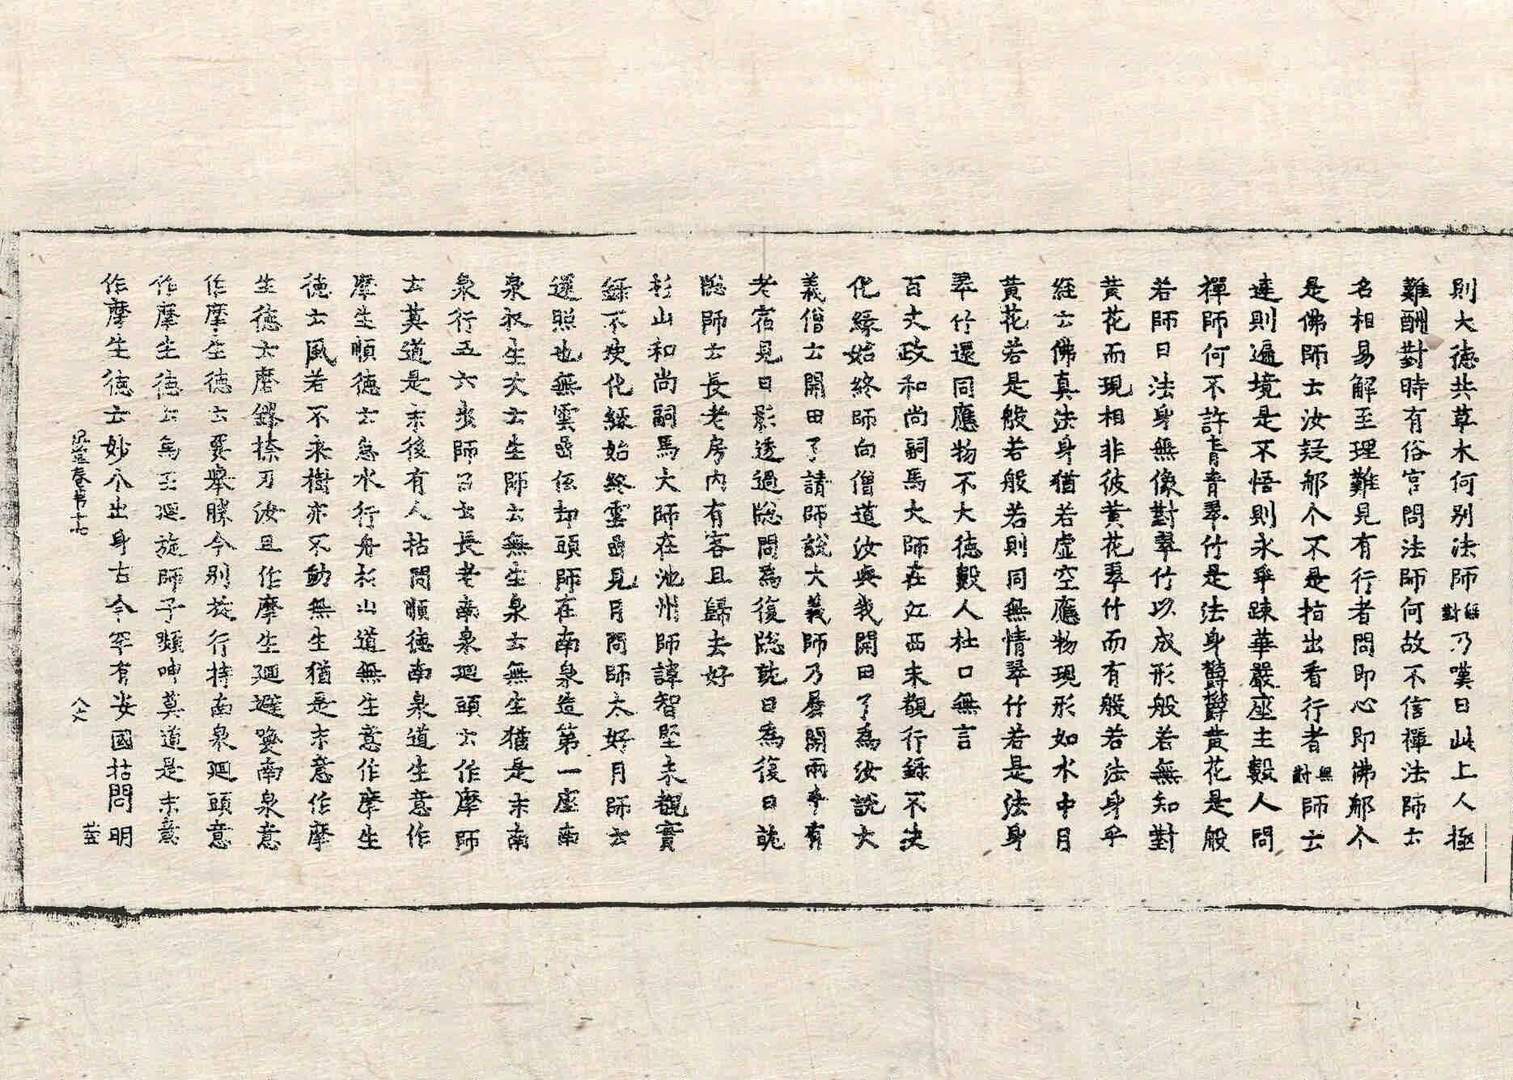 則大德共草木何别法師無對乃嘆曰此上人極
難酬對時有俗官問法師何故不信禪法師云
名相易解至理難見有行者問即心即佛那个
是佛師云汝疑那个不是指出看行者無對師云
達則遍境是不悟則永乖踈華嚴座主數人問
禪師何不許青青翠竹是法身欝欝黄花是般
若師曰法身無像對翠竹以成形般若無知對
黄花而現相非彼黄花翠竹而有般若法身乎
経云佛真法身猶若虚空應物現形如水中月
黄花若是般若般若則同無情翠竹若是法身
翠竹還同應物不大德數人杜口無言
百丈政和尚嗣馬大師在江西未覩行録不决
化緣始終師向僧道汝與我開田了為汝説大
義僧云開田了請師説大義師乃展開兩手有
老宿見日影透過牎問為復牎就日為復日就
牎師云長老房内有客且歸去好
杉山和尚嗣馬大師在池州師諱智堅未覩實
録不决化緣始終雲嵒見月問師太好月師云
還照也無雲嵒伍却頭師在南泉造第一座南
泉収生次云生師云無生泉云無生猶是末南
泉行五六步師召云長老南泉迴頭云作摩師
云莫道是末後有人拈問順德南泉道生意作
摩生順德云急水行舟杉山道無生意作摩生
德云風若不来樹亦不動無生猶是末意作摩
生德云磨鏘捺刃汝且作摩生迴避嚘南泉意
作摩生德云要舉勝令别施行持南泉迴頭意
作摩生德云無正迴旋師子嚬呻莫道是末意
作摩生德云妙个出身古今罕有安國拈問明